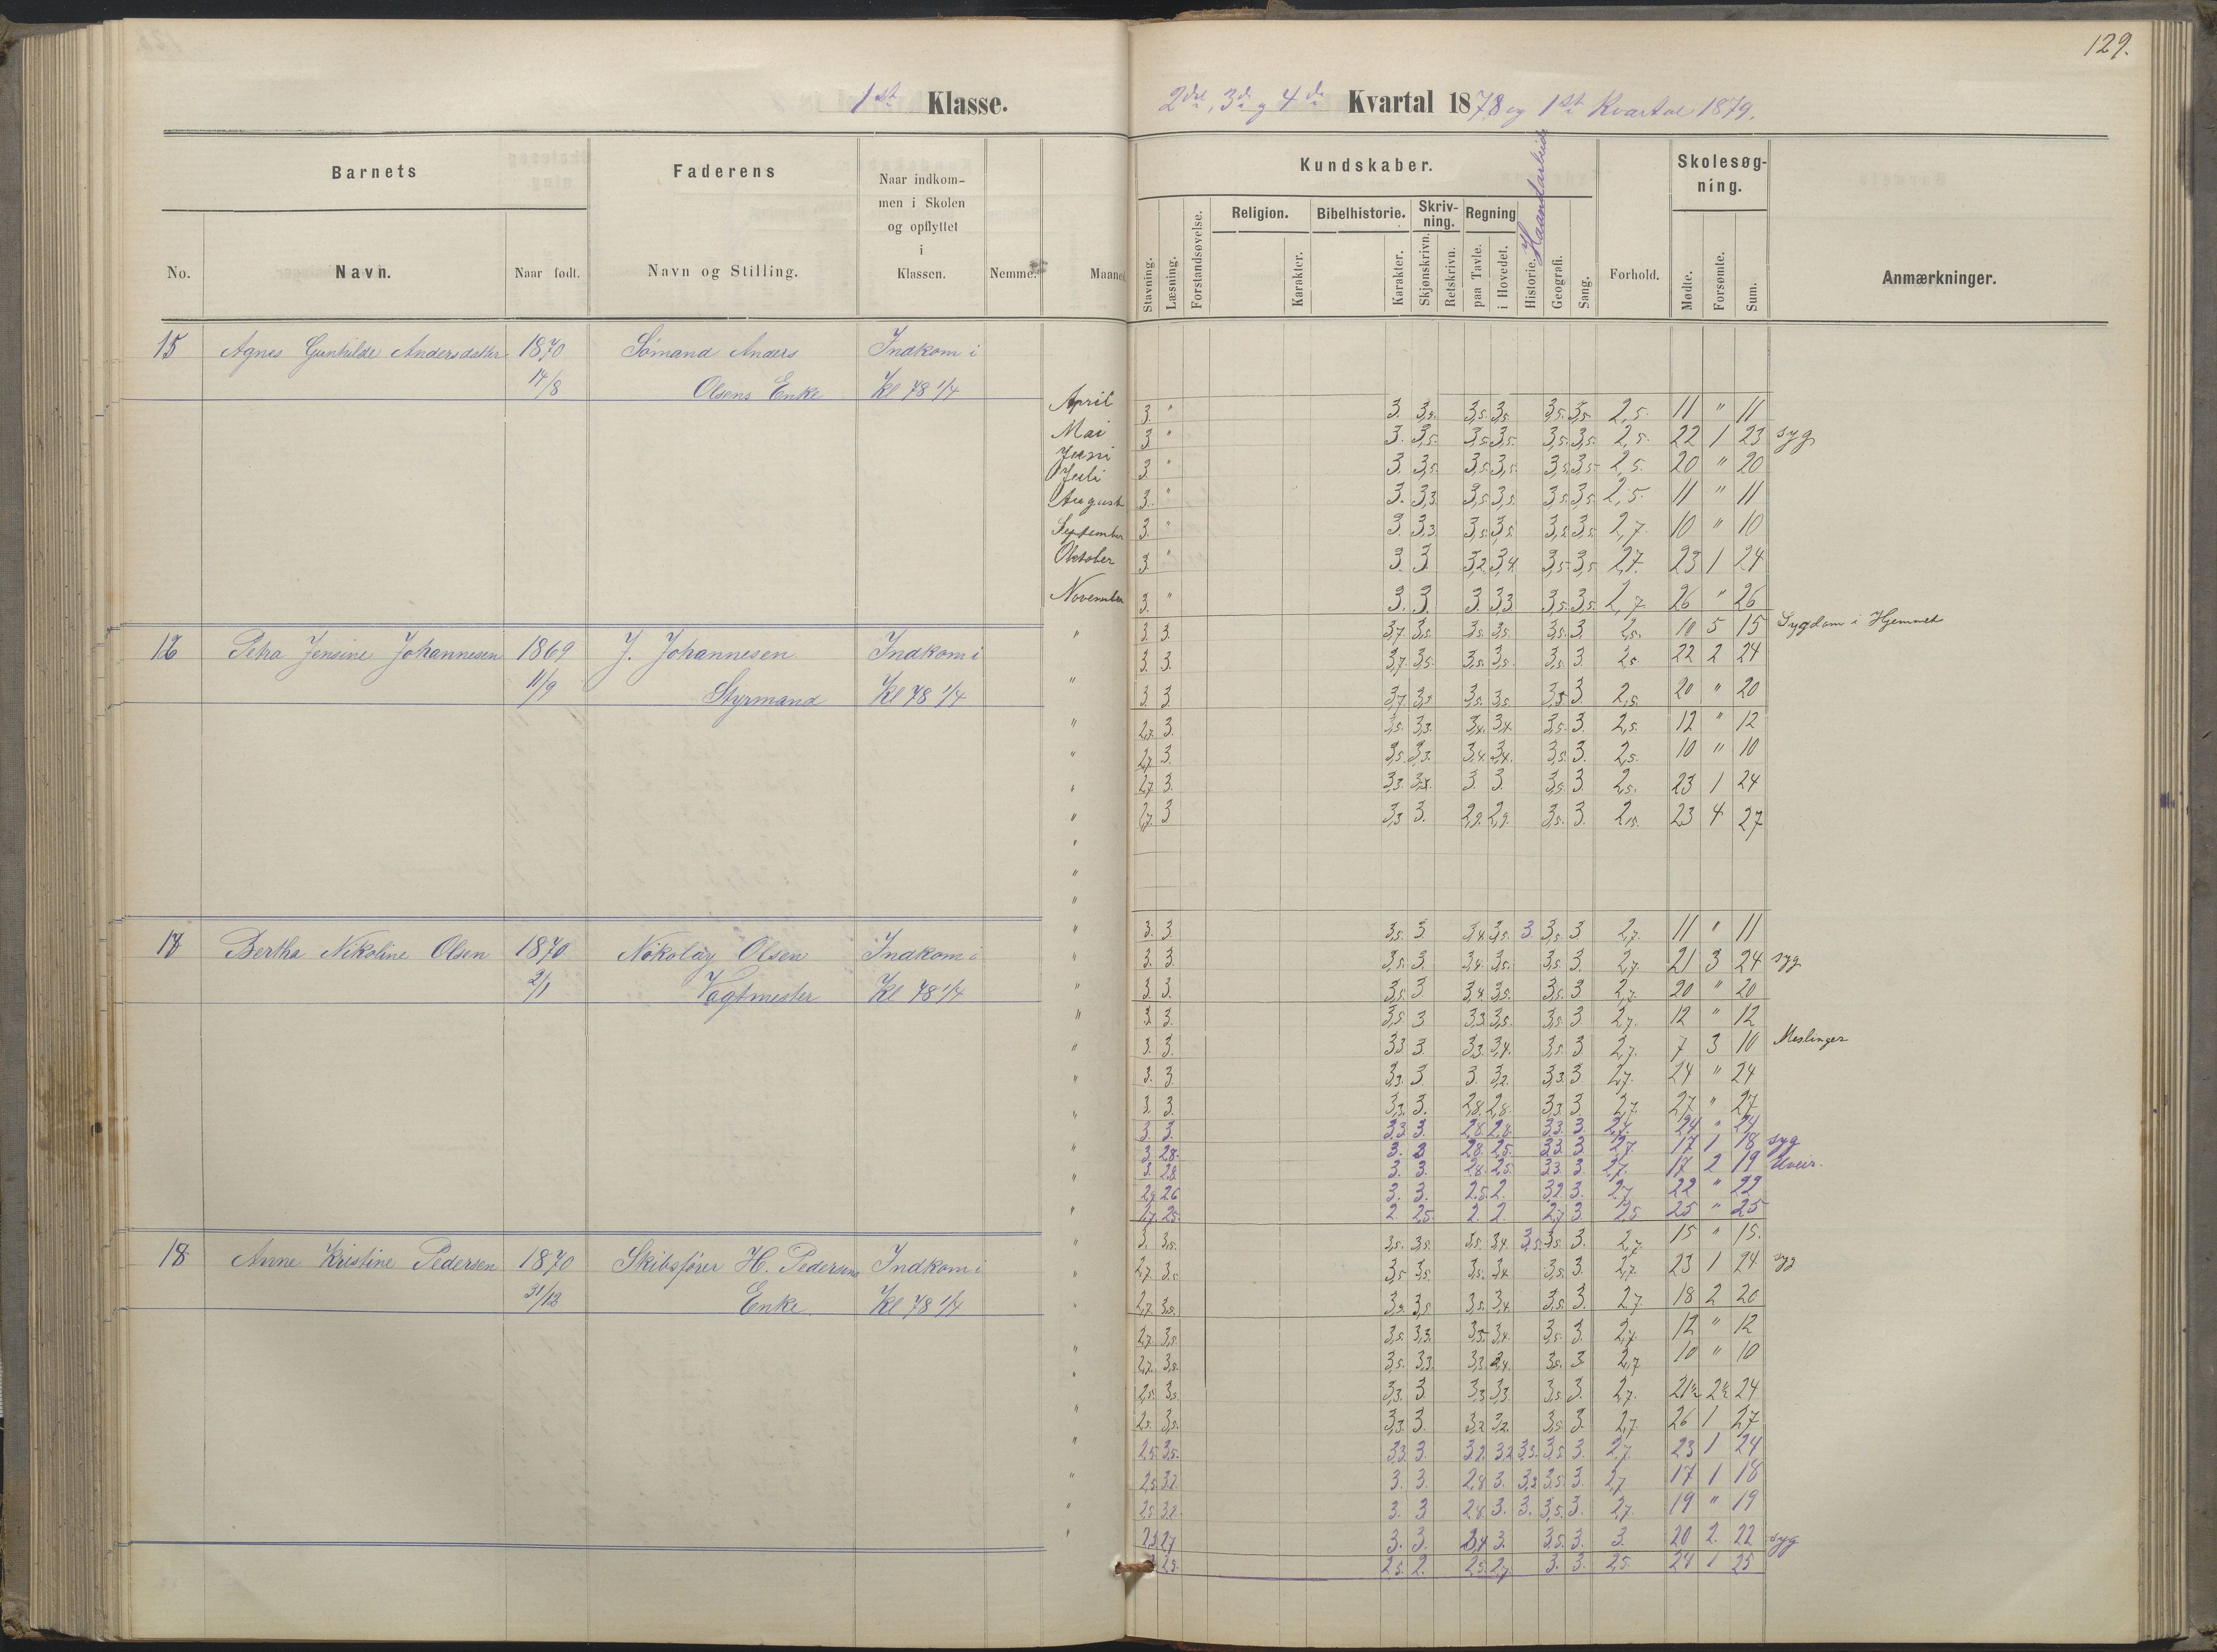 129.
1st Klasse.
2det, 3de og 4de Kvartal 1878 og 1ste Kvartal 1879.
Barnets
Faderens
Naar indkom-
men i Skolen
og opflyttet
i
Klassen.
No.
Navn.
Naar født.
Navn og Stilling.
Nemme.
Maaned
Kundskaber.
Haandarbeide
Skolesøg-
ning.
Stavning.
Læsning.
Forstandsøvelse.
Religion.
Karakter.
Bibelhistorie.
Karakter.
Skriv-
ning.
Skjønskrivn.
Retskrivn.
Regning
paa Tavle.
i Hovedet.
Historie.
Geografi.
Sang.
Forhold.
Mødte.
Forsømte.
Sum.
Anmærkninger.
15 Agnes Gunhilde Andersdatter 1870 Sömand Anders Indkom i
14/8 Olsens Enke Kl 78 1/4
April 3. " 3. 3,5. 3,5. 3,5. 3,5. 3,5. 2,5. 11 " 11
Mai 3 " 3. 3,5. 3,5. 3,5. 3,5. 3,5. 2,5. 22 1 23 syg
Juni 3 " 3. 3,5. 3,5. 3,5. 3,5. 3,5. 2,5. 20 " 20
Juli
August 3. " 3. 3,3. 3,5. 3,5. 3,5. 3,5. 2,5. 11 " 11
September 3. " 3. 3,3 3,5. 3,5. 3,5. 3,5. 2,7. 10 " 10
Oktober 3. " 3. 3. 3,2. 3,4. 3,5. 3,5. 2,7. 23 1 24
November 3. " 3. 3. 3. 3,3 3,5. 3,5. 2,7. 26 " 26
16 Petra Jensine Johannesen 1869 J. Johannesen Indkom i
11/9 Styrmand Kl 78 1/4
" 3. 3. 3,7 3,5. 3,5. 3,5. 3,5. 3. 2,5. 10 5 15 Sygdom i Hjemmet
3. 3. 3,7. 3,5. 3,5. 3,5. 3,5. 3. 2,5. 22 2 24
" 3. 3 3,7 3,5 3,5. 3,5 3,5 3 2,5. 20 " 20
" 2,7. 3. 3,5. 3,3. 3,4. 3,4. 3,5. 3. 2,5. 12 " 12
" 2,7 3. 3,5. 3,3. 3,4. 3,4. 3,5. 3. 2,5. 10 " 10
" 2,7. 3. 3,3. 3. 3. 3,5. 3. 2,5. 23 1 24
" 2,7. 3 3,3 3. 2,9. 2,9. 3,5. 3. 2,5. 23 4 27
17 Bertha Nikoline Olsen 1870 Nikolay Olsen Indkom i
2/1 Vagtmester Kl 78 1/4
" 3. 3. 3,5. 3 3,4. 3,5. 3. 3,5. 3 2,7. 11 " 11
" 3. 3. 3,5. 3. 3,4. 3,5. 3,5. 3. 2,7. 21 3 24 syg
" 3. 3. 3,5. 3 3,4. 3,5. 3,5. 3 2,7. 20 " 20
" 3. 3. 3,5. 3 3,3. 3,5. 3,5. 3 2,7. 12 " 12
" 3. 3. 3,3 3 3,3. 3,4. 3,5. 3 2,7. 7 3 10 Meslinger
" 3. 3 3,3. 3 3. 3,2. 3,3. 3 2,7. 24 " 24
" 3. 3. 3,3. 3. 2,8. 2,8. 3,3. 3. 2,7. 27 " 27
3. 3. 3,3. 3. 2,8. 2,8. 3,3. 3. 2,7. 24 " 24
" 3. 2,8. 3. 3 2,8. 2,5. 3,3. 3 2,7. 17 1 18 syg
" 3. 2,8 3. 3. 2,8. 2,5. 3,3. 3. 2,7. 17 2 19 Uveir.
" 2,7. 2,6 3. 3. 2,5. 2. 3,2. 3. 2,7 22 " 22
" 2,7. 2,5. 2. 2,5. 2. 2. 2,7 3 2,5 25 " 25
18 Anne Kristine Pedersen 1870 Skibsfører H. Pedersens Indkom i
31/12 Enke Kl 78 1/4
" 3. 3,5. 3,5. 3,5. 3,5. 3,4. 3,5. 3,5. 3. 2,7. 15 " 15.
" 2,7. 3,5. 3,5 3,5. 3,5. 3,4 3,5. 3. 2,7. 23 1 24 syg
" 2,7. 3,5. 3,5. 3,5 3,5. 3,4 3,5. 3. 2,7. 18 2 20
2,7. 3,5. 3,5. 3,3. 3,5. 3,4. 3,5. 3. 2,7. 12 " 12
" 2,7. 3,5. 3,5. 3,3. 3,3. 3,4. 3,5. 3 2,7 10 " 10
" 2,5. 3,5. 3,3. 3 3,3 3,3. 3,5. 3. 2,7. 21½ 2½ 24
" 2,5. 3,5. 3,3. 3 3,2. 3,2. 3,5. 3. 2,7. 26 1 27
" 2,5. 3,5. 3,3. 3. 3,2. 3,2. 3,3. 3,5. 3. 2,7. 23 1 24
" 2,5. 3,2. 3. 3. 2,8 3. 3,3 3,5. 3. 2,7 17 1 18
" 2,5 3,2. 3. 3 2,8. 3. 3. 3,5. 3. 2,7. 19 " 19
" 2,5. 2,7 3. 3. 2,4 3. 3,5. 3. 3. 20 2. 22 syg
2,5. 2,5. 2. 2,5. 2,7 3. 3. 2,5. 24 1 25